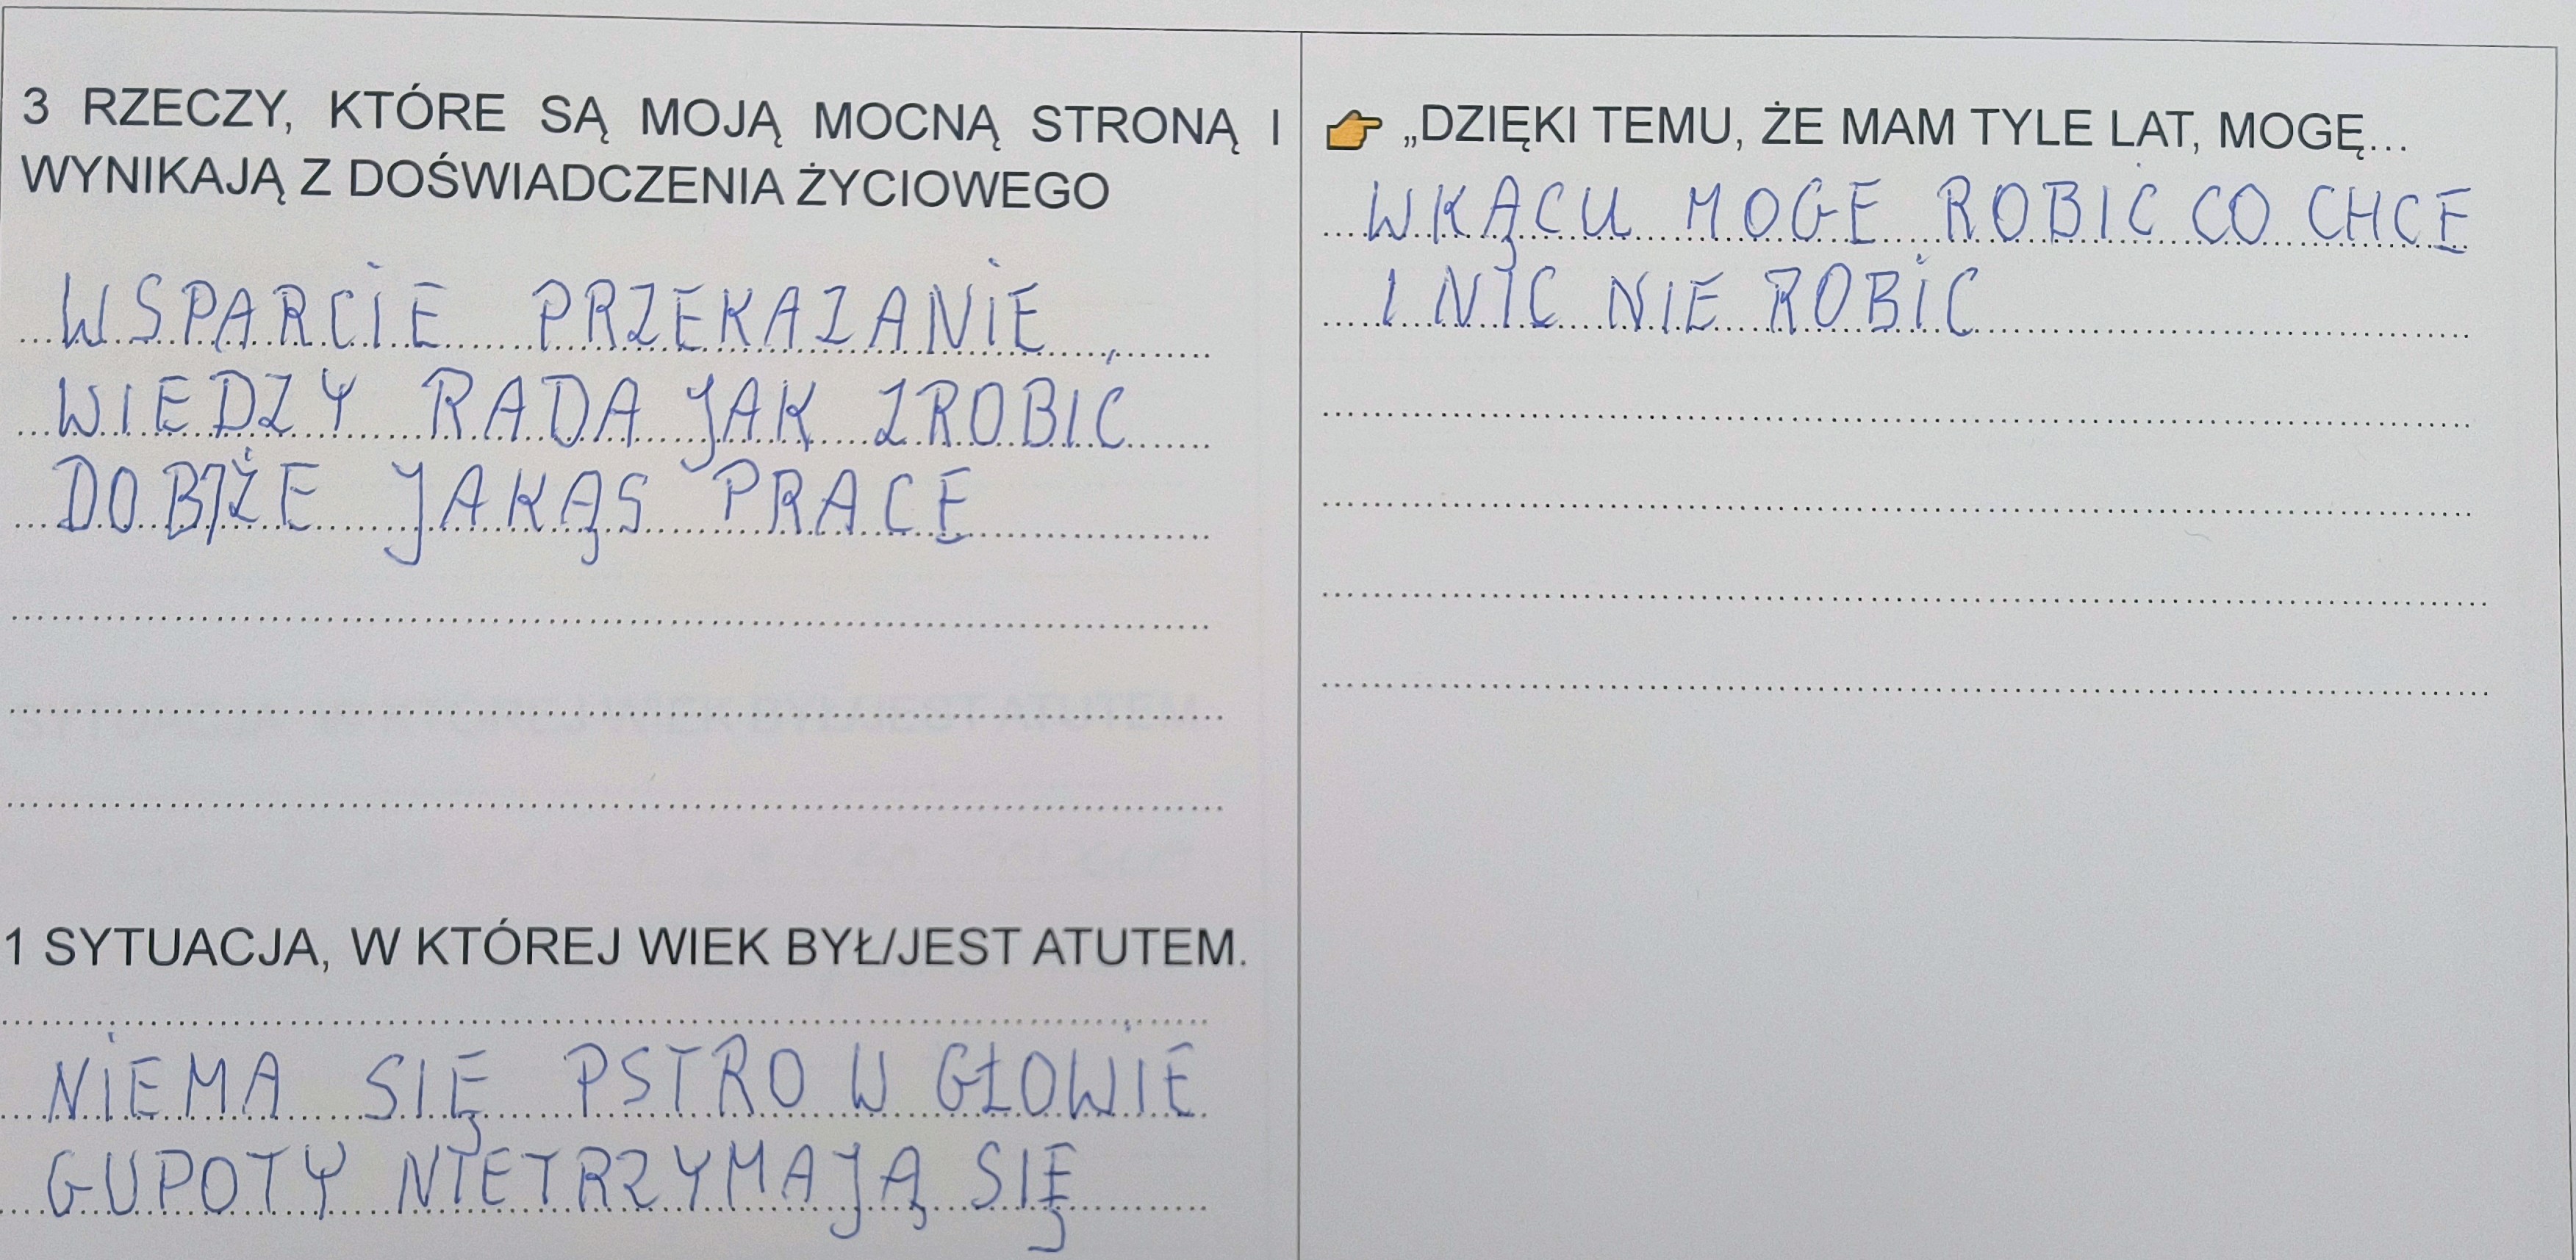 3 RZECZY, KTÓRE SĄ MOJĄ MOCNĄ STRONĄ I
WYNIKAJĄ Z DOŚWIADCZENIA ŻYCIOWEGO
WSPARCIE PRZEKAZANIE
WIEDZY RADA JAK ZROBIĆ
DOBŻE JAKĄS PRACE
1 SYTUACJA, W KTÓREJ WIEK BYŁ/JEST ATUTEM.
NIEMA SIĘ PSTRO W GŁOWIE
GUPOTY NIETRZYMAJĄ SIĘ
👉 „DZIĘKI TEMU, ŻE MAM TYLE LAT, MOGĘ...
WKĄCU MOGE ROBIĆ CO CHCE
I NIC NIE ROBIĆ